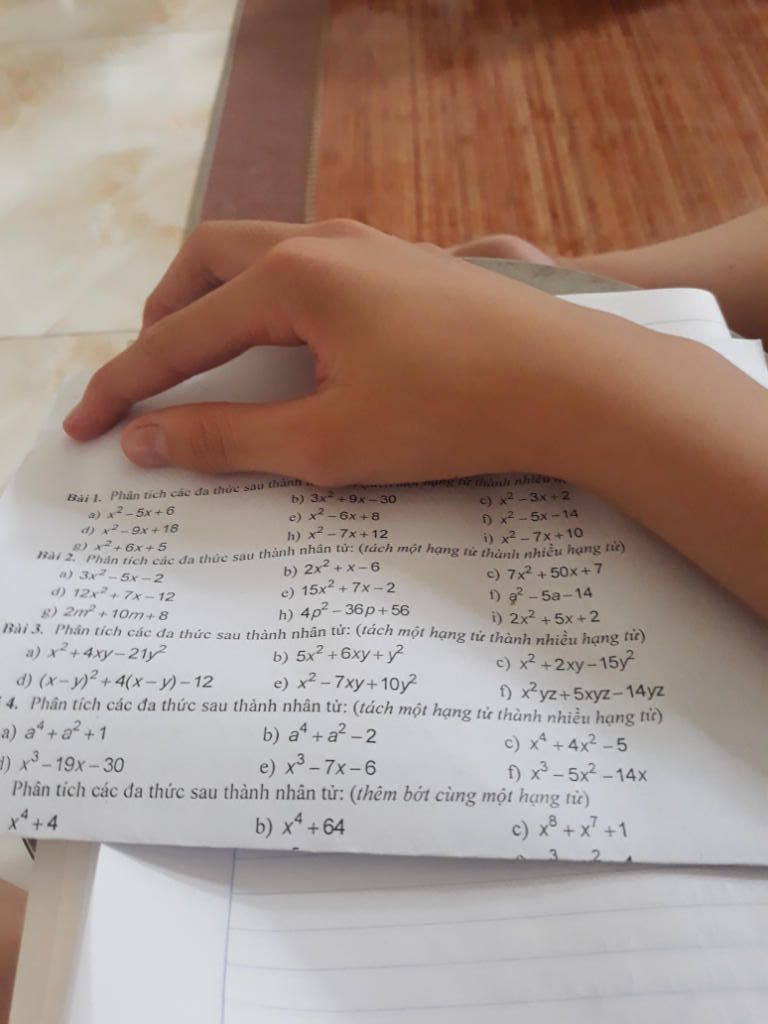 Bài 1. Phân tích các đa thức sau thành hạng tử thành nhiều
a) x² − 5x + 6 b) 3x² + 9x − 30 c) x² − 3x + 2
d) x² − 9x + 18 e) x² − 6x + 8 f) x² − 5x − 14
g) x² + 6x + 5 h) x² − 7x + 12 i) x² − 7x + 10
Bài 2. Phân tích các đa thức sau thành nhân tử: (tách một hạng tử thành nhiều hạng tử)
a) 3x² − 5x − 2 b) 2x² + x − 6 c) 7x² + 50x + 7
d) 12x² + 7x − 12 e) 15x² + 7x − 2 f) a² − 5a − 14
g) 2m² + 10m + 8 h) 4p² − 36p + 56 i) 2x² + 5x + 2
Bài 3. Phân tích các đa thức sau thành nhân tử: (tách một hạng tử thành nhiều hạng tử)
a) x² + 4xy − 21y² b) 5x² + 6xy + y² c) x² + 2xy − 15y²
d) (x − y)² + 4(x − y) − 12 e) x² − 7xy + 10y² f) x²yz + 5xyz − 14yz
4. Phân tích các đa thức sau thành nhân tử: (tách một hạng tử thành nhiều hạng tử)
a) a⁴ + a² + 1 b) a⁴ + a² − 2 c) x⁴ + 4x² − 5
d) x³ − 19x − 30 e) x³ − 7x − 6 f) x³ − 5x² − 14x
Phân tích các đa thức sau thành nhân tử: (thêm bớt cùng một hạng tử)
x⁴ + 4 b) x⁴ + 64 c) x⁸ + x⁷ + 1